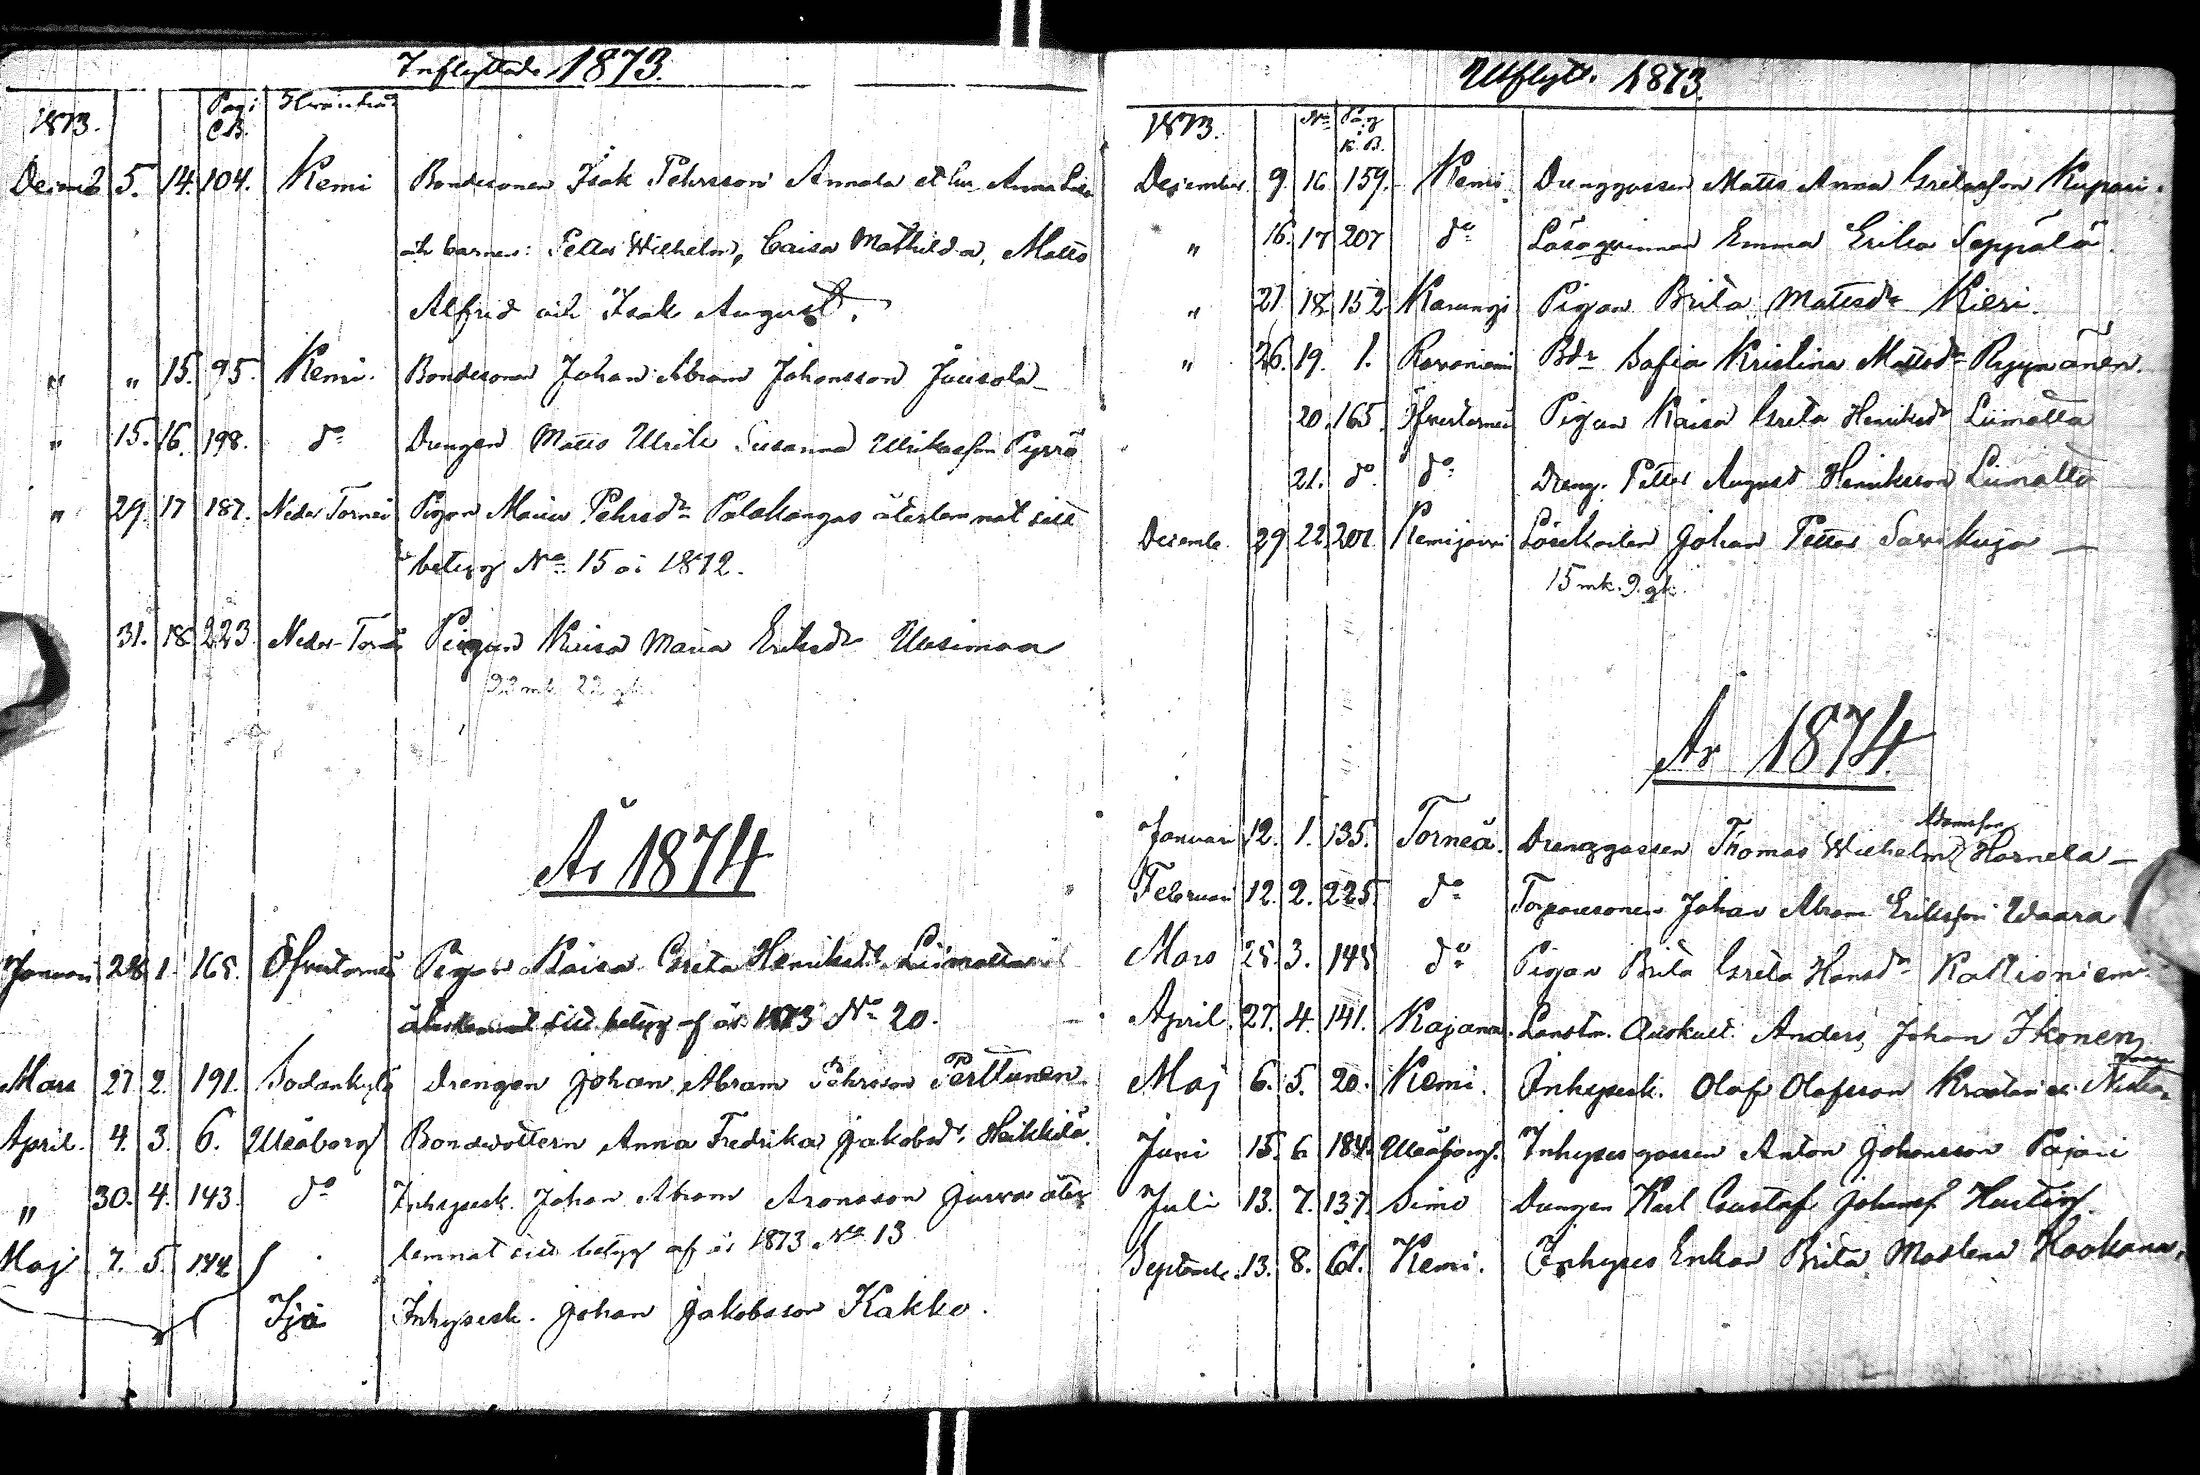 Inflyttade 1873.
1873. Pag: C.B. Hvarifrån
Decemb 5. 14. 104. Kemi Bondesonen Isak Pehrsson Annala Anna Lisa
och barnen: Petter Wilhelm, Caisa Mathilda, Matts
Alfred och Isak August.
" " 15. 95. Kemi. Bondesonen Johan Abram Johansson Juusola
" 15. 16. 198. do Drengen Matts Ulrik Susanna Ulrikasson Pyrrö
" 29. 17 187. Neder Torneå Pigan Maria Pehrsdr Palokangas återlemnat sitt
betyg No 15 i 1872.
31. 18. 223. Neder-Torneå Pigan Kaisa Maria Eriksdr Uusimaa
22 mk
År 1874
Januari 28. 1. 165. Öfvertorneå Pigan Kaisa Greta Henriksdr Liimatta
återlemnat sitt betyg af år 1873 No 20.
Mars 27. 2. 191. Sodankylä Drengen Johan Abram Pehrsson Perttunen
April. 4. 3. 6. Uleåborg Bondedottern Anna Fredrika Jakobsdr Heikkilä.
" 30. 4. 143. do Inhysesk. Johan Abram Aronsson Juvva åter
lemnat sitt betyg af år 1873 No 13
Maj 7. 5. 144
Ijo Inhysesk. Johan Jakobsson Kakko.
Utflytt. 1873.
1873. No Pag K.B.
Desember. 9. 16 159. Kemi. Drenggossen Matts Anna Gretasson Kupari.
" 16. 17 207 do Lösaqvinnan Emma Erika Seppälä.
" 21. 18. 152 Karungi Pigan Brita Mattsdr Kieri.
" 26. 19. 1. Rovaniemi Bdr Sofia Kristina Mattsdr Ryynänen.
20. 165. Öfvertorneå Pigan Kaisa Greta Henriksdr Liimatta
21. do. do Dreng. Petter August Henriksson Liimatta
Decembr. 29. 22. 201. Kemijärvi Lösekarlen Johan Petter Savikuja
15 mk. 9.
År 1874.
Januari 12. 1. 135. Torneå. Drenggossen Thomas Wilhelm Adamsson Harnela
Februari 12. 2. 225. do Torparesonen Johan Abram Eriksson Waara
Mars 25. 3. 145 do Pigan Brita Greta Hansdr Kallioniemi
April. 27. 4. 141. Kajana. Lanstm. Auskult. Anders Johan Ikonen
Maj 6. 5. 20. Kemi. Inhysesk. Olof Olofsson
Juni 15. 6 184. Uleåborg. Inhysesgossen Anton Johansson Pajari
Juli 13. 7. 137. Simo Drengen Karl Gustaf Johansf.
Septembr. 13. 8. 61. Kemi. Inhyses Enkan Brita Maslena Hookana.